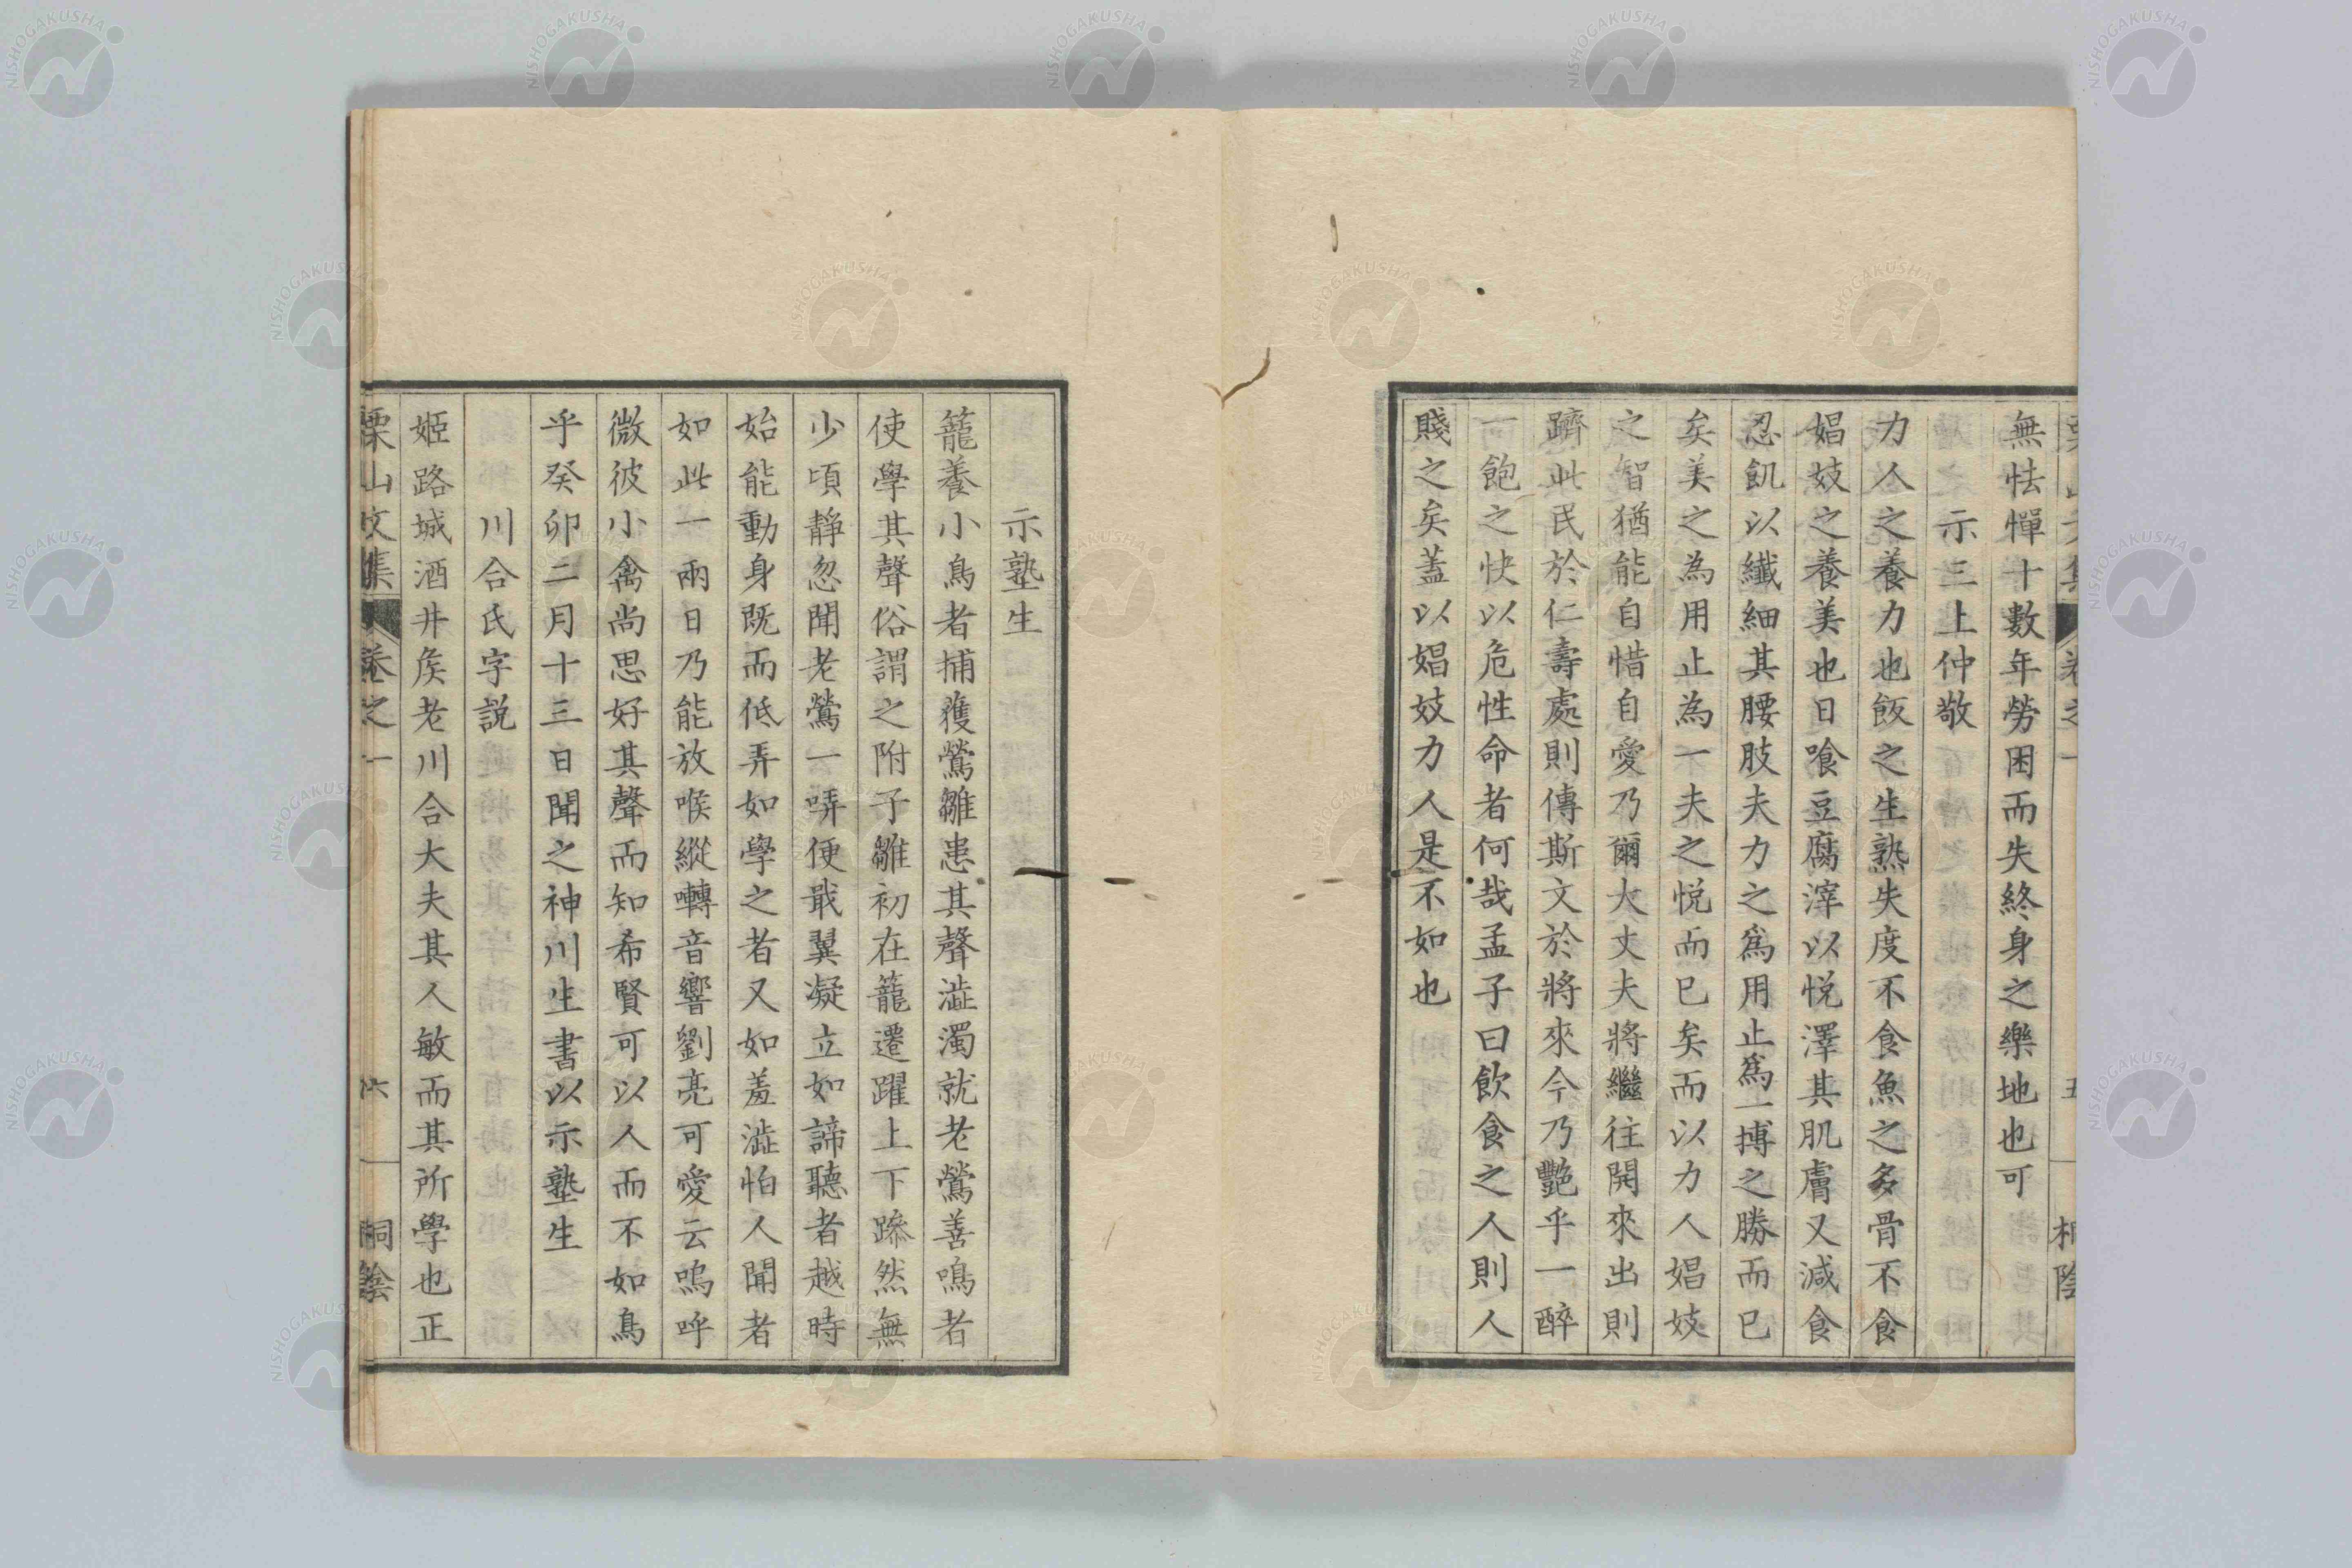 無怯憚十數年勞困而失終身之樂地也可
示三上仲敬
力人之養力也飯之生熟失度不食魚之多骨不食
娼妓之養美也日喰豆腐滓以悅澤其肌膚又減食
忍飢以纖細其腰肢夫力之爲用止爲一摶之勝而已
矣美之為用止為一夫之悅而已矣而以力人娼妓
之智猶能自惜自愛乃爾大丈夫將繼往開來出則
躋此民於仁壽處則傳斯文於將來今乃艷乎一醉
一飽之快以危性命者何哉孟子曰飲食之人則人
賤之矣蓋以娼妓力人是不如也
示塾生
籠養小鳥者捕獲鶯雛患其聲澁濁就老鶯善鳴者
使學其聲俗謂之附子雛初在籠遷躍上下跡然無
少頃靜忽聞老鶯一哢便戢翼凝立如諦聽者越時
始能動身既而低弄如學之者又如羞澁怕人聞者
如此一兩日乃能放喉縱囀音響劉亮可愛云嗚呼
微彼小禽尚思好其聲而知希賢可以人而不如鳥
乎癸卯二月十三日聞之神川生書以示塾生
川合氏字說
姬路城酒井矦老川合大夫其人敏而其所學也正
栗山文集 卷之一 六 桐陰
NISHOGAKUSHA